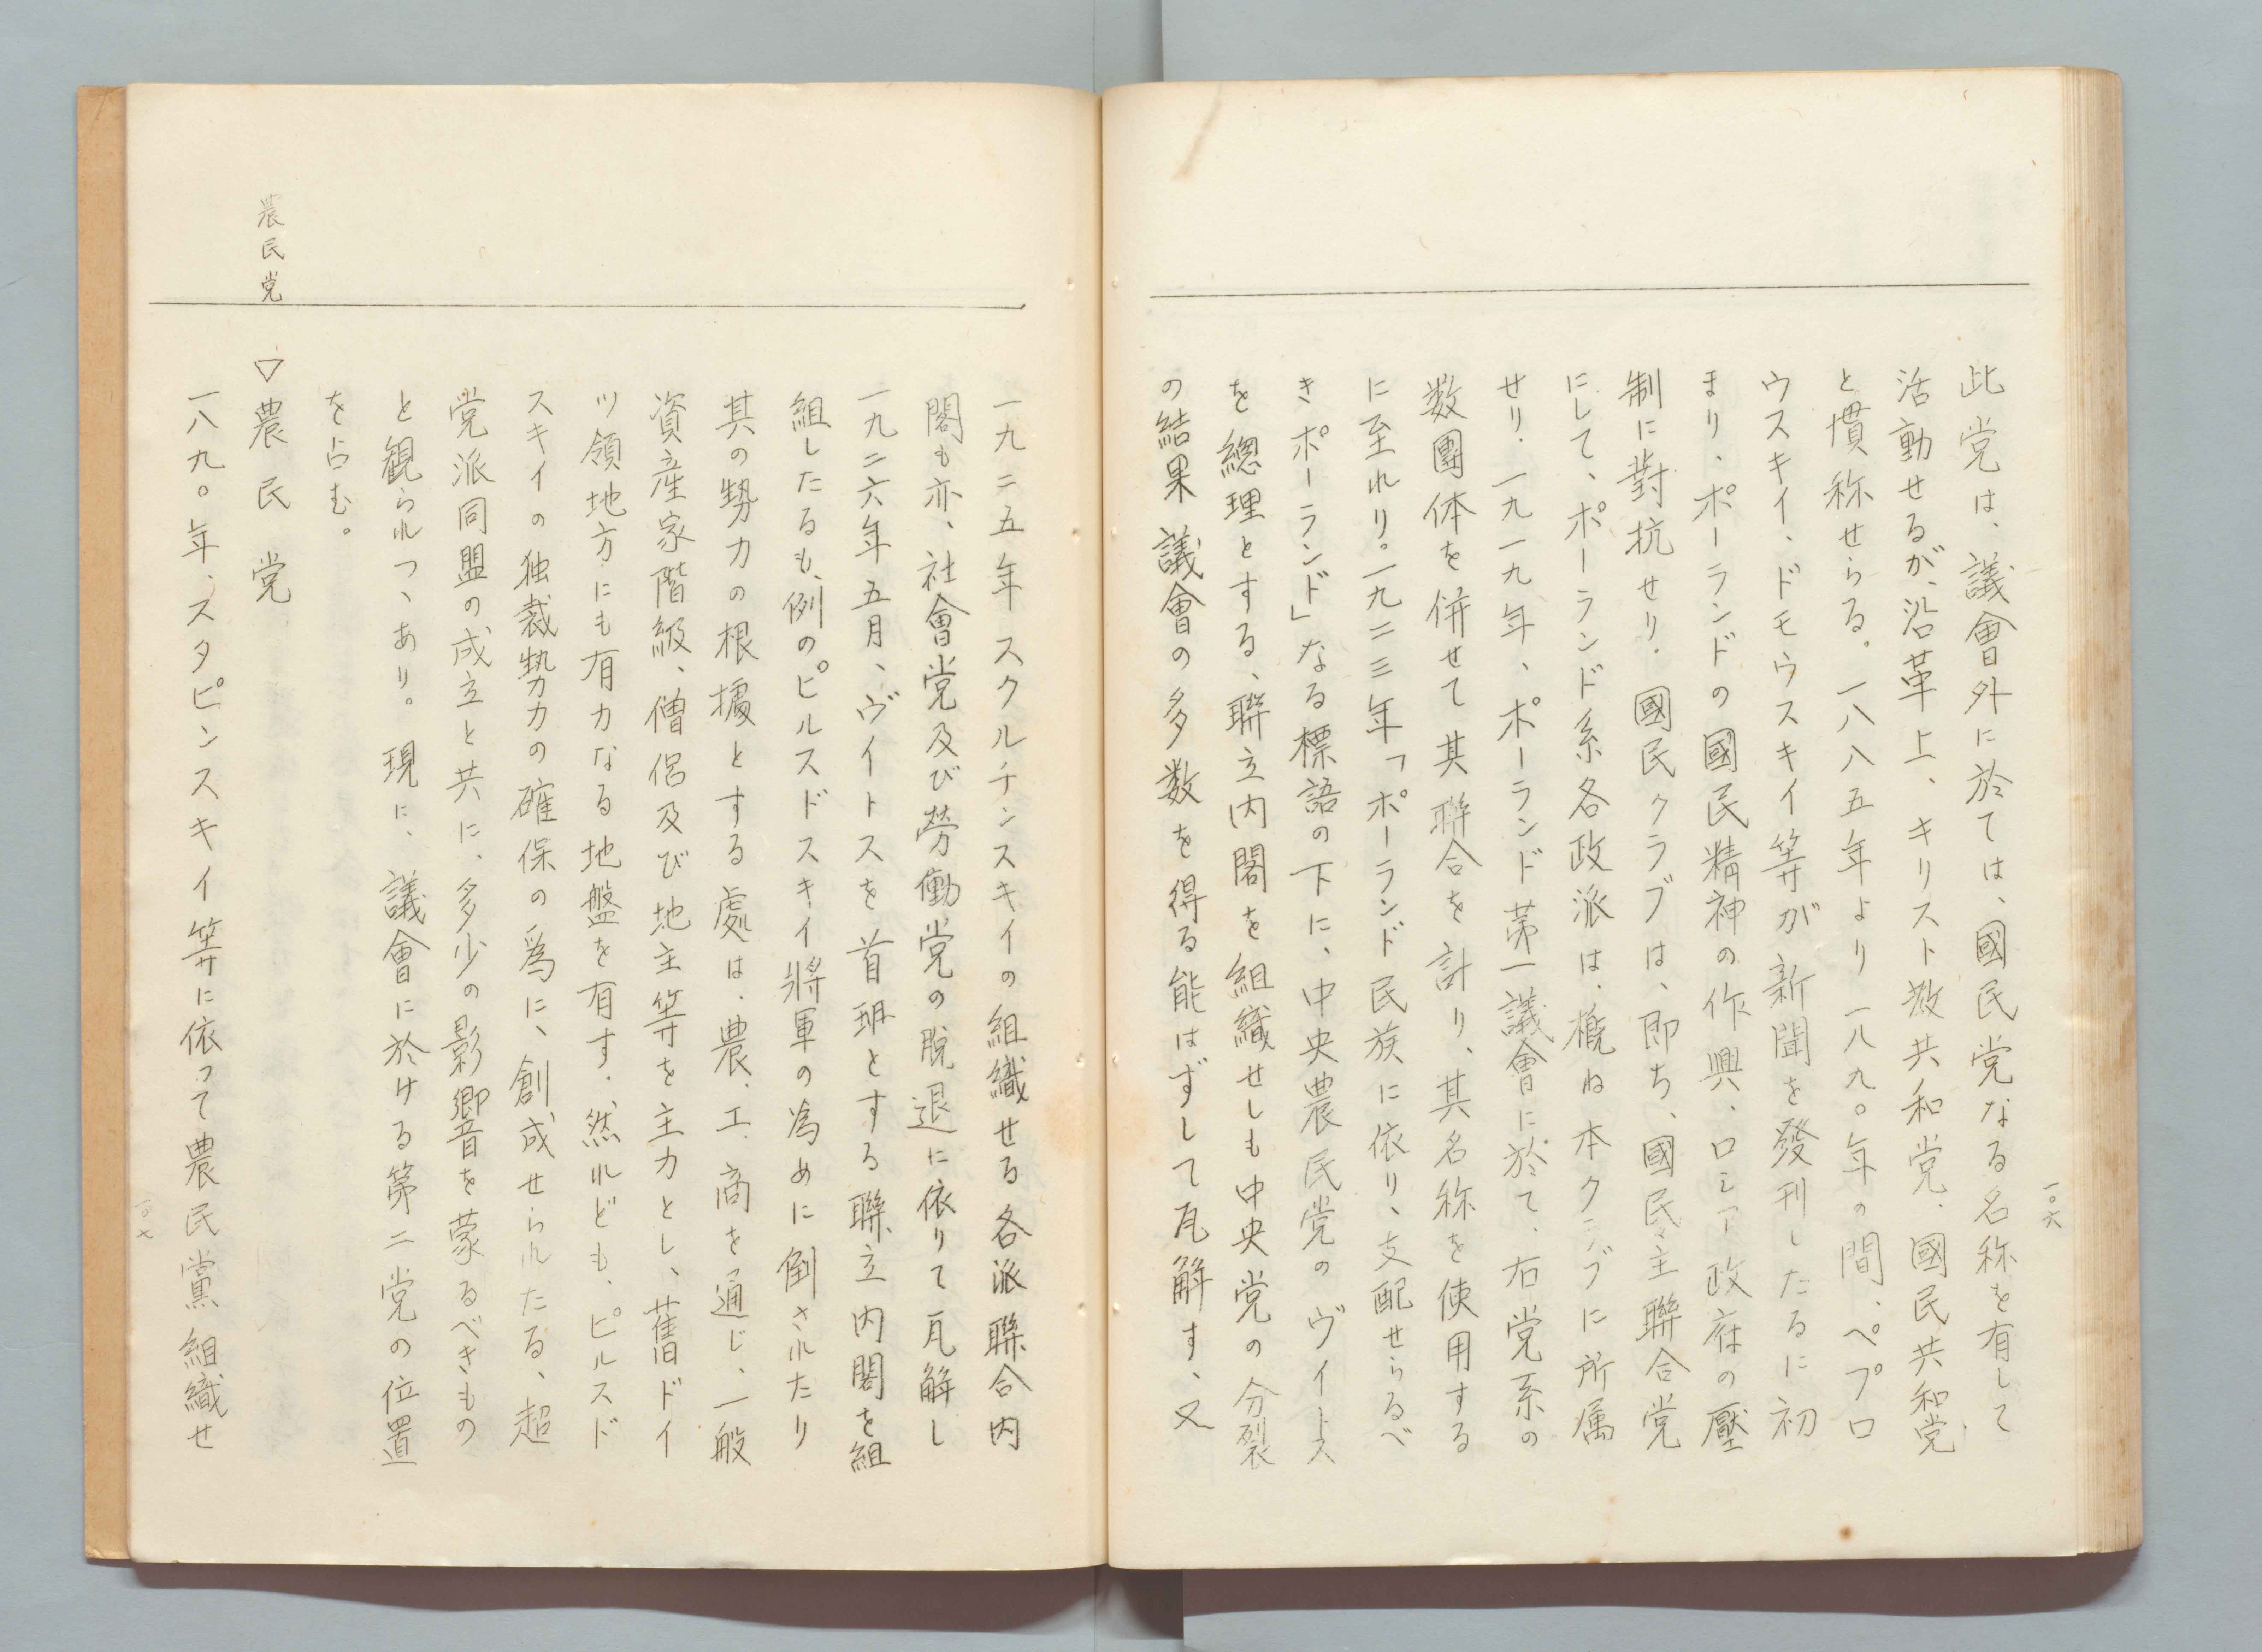 一〇六
此党は、議會外に於ては、國民党なる名称を有して
活動せるが、沿革上、キリスト教共和党、國民共和党
と慣称せらる。一八八五年より一八九〇年の間、ペプロ
ウスキイ、ドモウスキイ等が新聞を發刊したるに初
まり、ポーランドの國民精神の作興、ロシア政府の壓
制に對抗せり。國民クラブは、即ち、國民々主聯合党
にして、ポーランド系各政派は、概ね本クラブに所属
せり。一九一九年、ポーランド第一議會に於て、右党系の
数團体を併せて其聯合を計り、其名称を使用する
に至れり。一九二三年「ポーランド民族に依り、支配せらるべ
きポーランド」なる標語の下に、中央農民党のヴイトス
を總理とする、聯立内閣を組織せしも中央党の分裂
の結果議會の多数を得る能はずして瓦解す、又
一九二五年スクルチンスキイの組織せる各派聯合内
閣も亦、社會党及び勞働党の脱退に依りて瓦解し
一九二六年五月、ヴイトスを首班とする聯立内閣を組
組したるも、例のピルスドスキイ將軍の為めに倒されたり
其の勢力の根據とする處は、農、工、商を通じ、一般
資産家階級、僧侶及び地主等を主力とし、舊ドイ
ツ領地方にも有力なる地盤を有す、然れども、ピルスド
スキイの独裁勢力の確保の爲に、創成せられたる、超
党派同盟の成立と共に、多少の影響を蒙るべきもの
と観られつゝあり。現に、議會に於ける第二党の位置
を占む。
農民党
▽農民党
一八九〇年、スタピンスキイ等に依って農民黨組織せ
一〇七